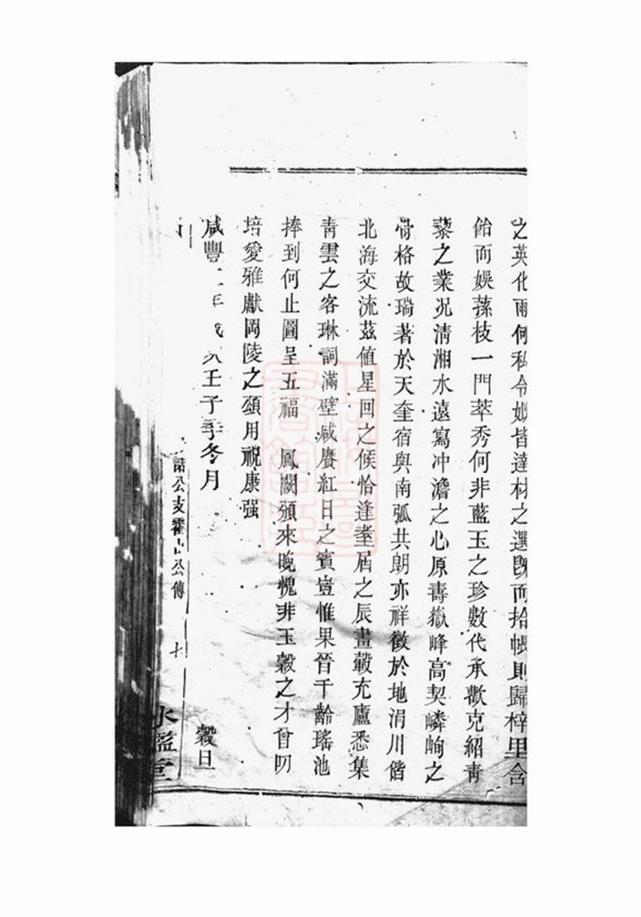 之英化雨何私令嫂皆達材之選旣而拾帳則歸梓里含
飴而娛蓀枝一門萃秀何非藍玉之珍數代承歡克紹靑
藜之業况清湘水遠寫冲澹之心原靑嶽峰高契嶙峋之
骨格故瑞著於天奎宿與南弧共朗亦祥徵於地涓川偕
北海交流茲值星回之候恰逢臺眉之辰畫轂充廬悉集
靑雲之客琳詞滿壁咸賡紅日之賓豈惟果晉千齡瑤池
捧到何止圖呈五福 鳳闕頒來晚愧非玉轂之才曾叨
培愛雅獻岡陵之頌用祝康强
咸豐二年歲次壬子季冬月 穀旦
公支霍 公傳 十
水鑑堂